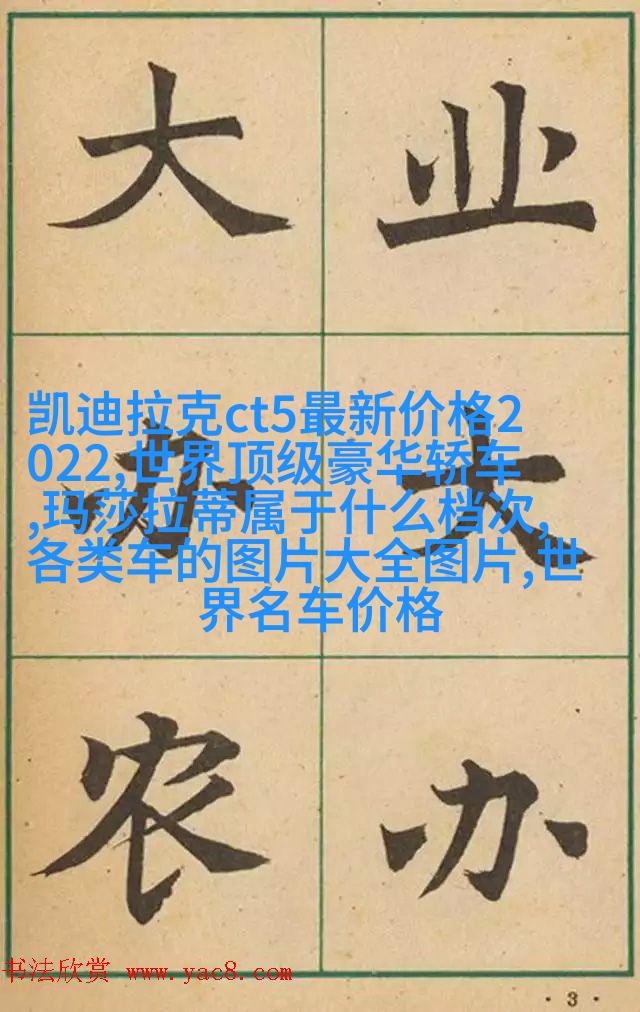 大办农
业大办
凯迪拉克ct5最新价格2
022,世界顶级豪华轿车
,玛莎拉蒂属于什么档次,
各类车的图片大全图片,世
界名车价格
书法欣赏 www.yac8.com
·3·